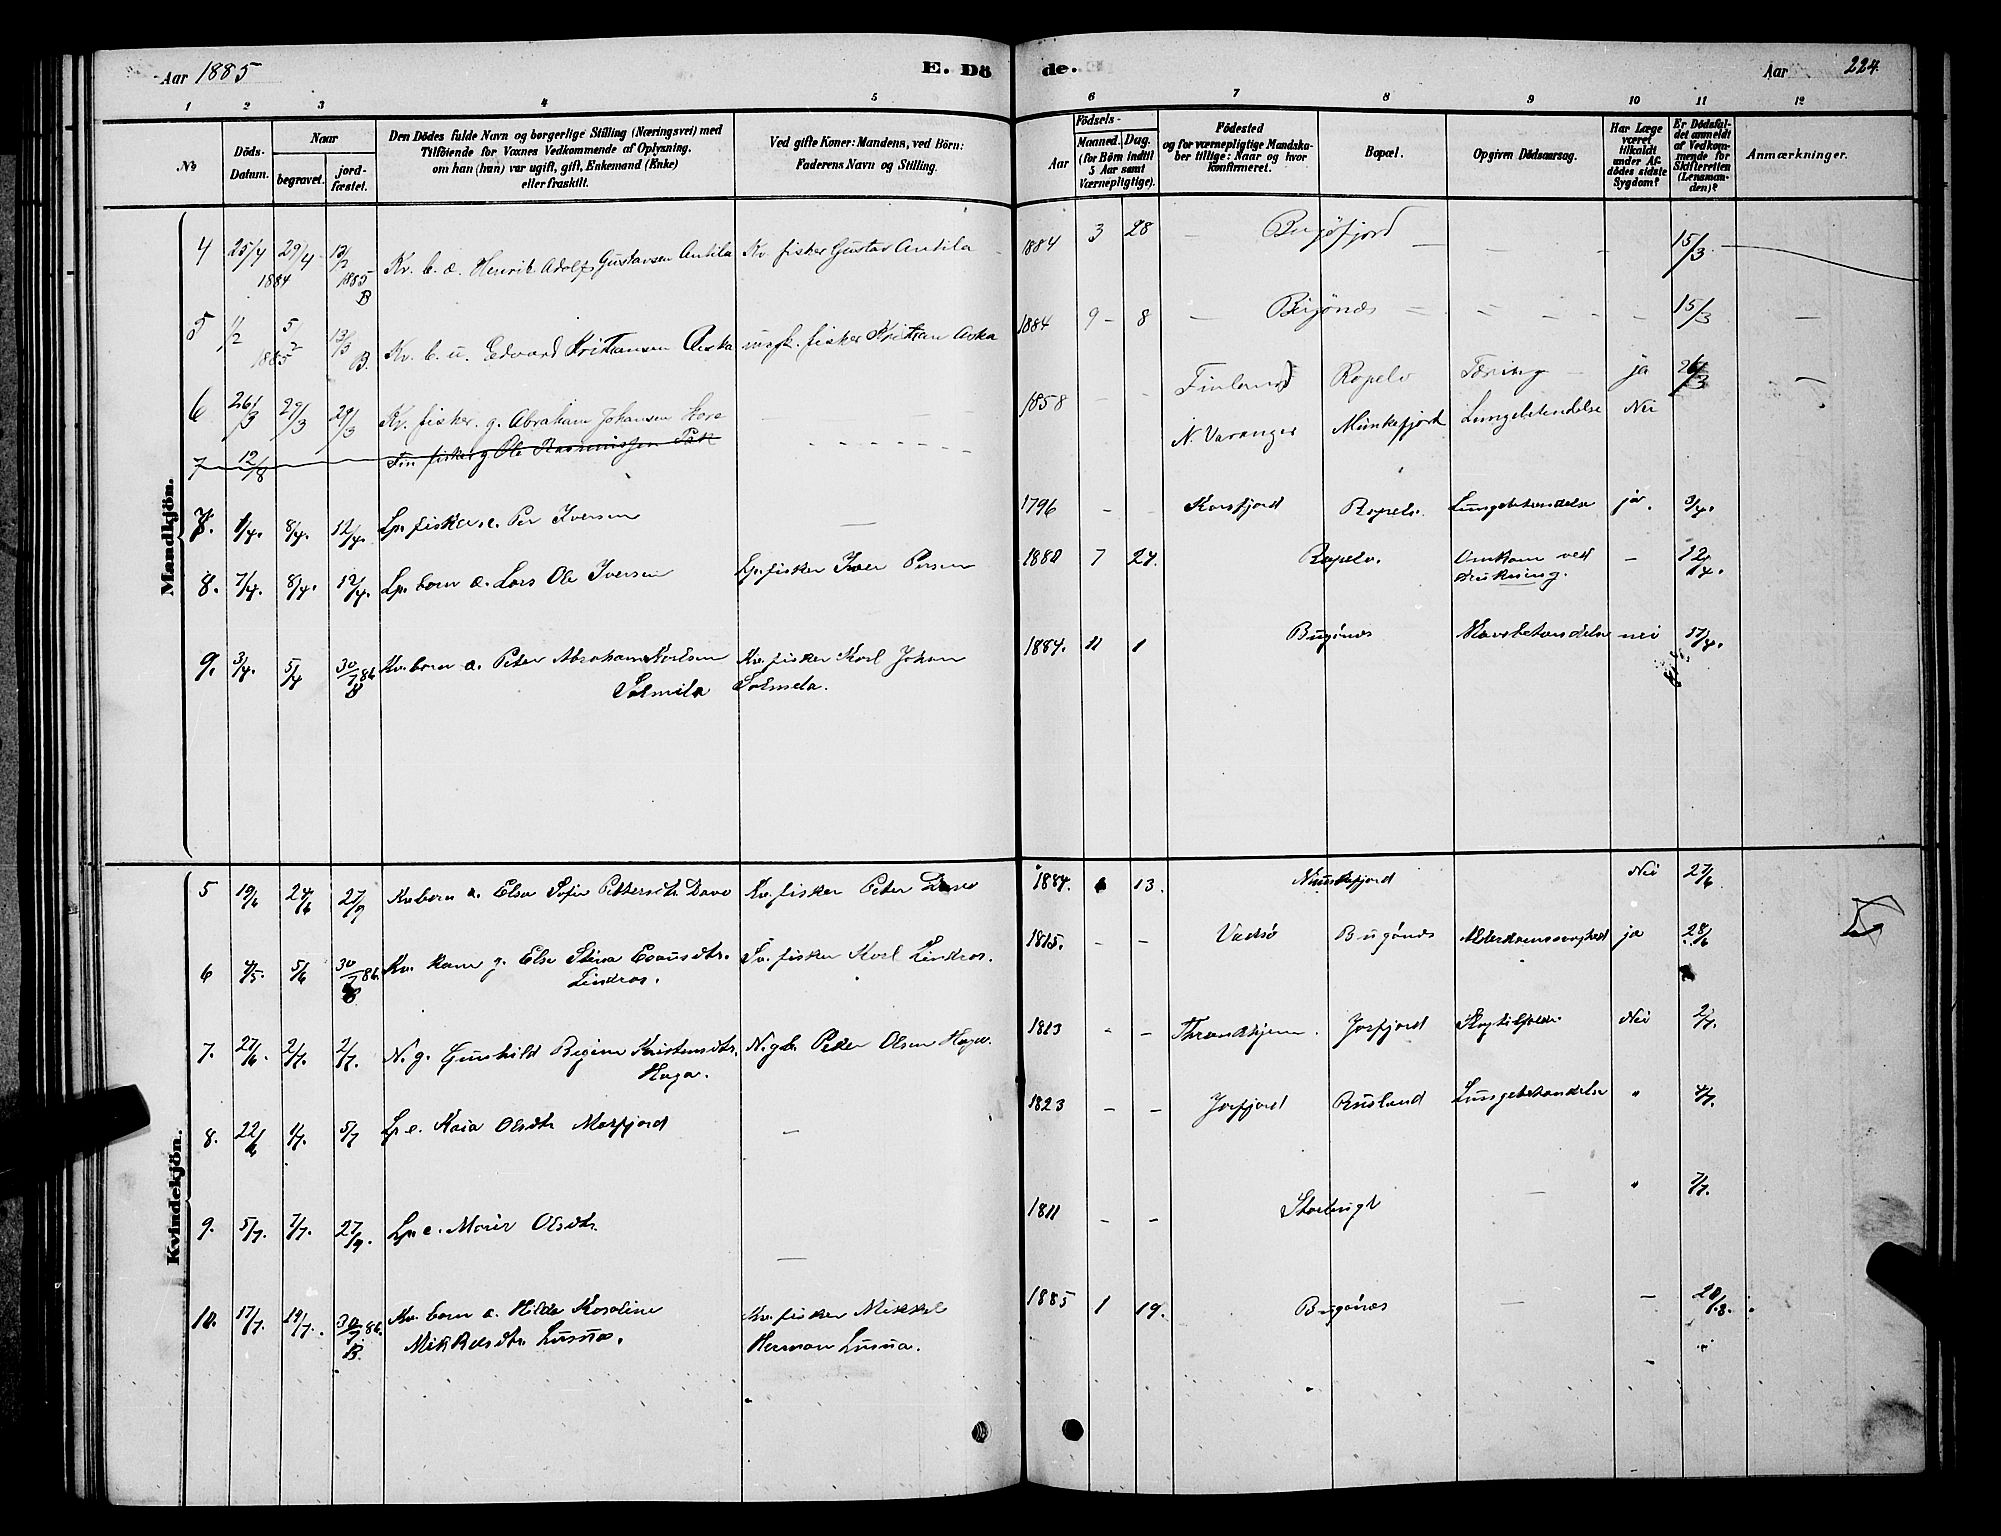 Aar 1885
E. Dö de.
Aar 224.
1 2 3 4 5 6 7 8 9 10 11 12
No.
Döds-Datum.
Naar
begravet.
jord-fæstet.
Den Dödes fulde Navn og borgerlige Stilling (Næringsvei) med
Tilföiende for Voxnes Vedkommende af Oplysning,
om han (hun) var ugift, gift, Enkemand (Enke)
eller fraskilt.
Ved gifte Koner: Mandens, ved Börn:
Faderens Navn og Stilling.
Födsels-
Aar
Maaned. Dag.
(for Börn indtil
5 Aar samt
Værnepligtige).
Födested
og for værnepligtige Mandska-
ber tillige: Naar og hvor
konfirmeret.
Bopæl.
Opgiven Dödsaarsag.
Har Læge
været
tilkaldt
under Af-
dödes sidste
Sygdom?
Er Dödsfal-
det anmeldt
af Vedkom-
mende for
Skifteretten
(Lensman-
den)?
Anmærkninger.
Mandkjön.
4 25/4 29/4 1884 13/3 1885 B Kv. b. æ. Henrik Adolf Gustavsen Antila Kv. fisker Gustav Antila 1884 3 28 Bugöfjord 15/3
5 1/2 5/2 1885 13/3 B. Kv. b. u. Edvard Kristiansen Aska fisker Kristian Aska 1884 9 8 Bugönæs 15/3
6 26/3 29/3 29/3 Kv. fisker g. Abraham Johansen 1858 Finland Ropelv Tæring ja 26/3
7 12/8 Fin fisker g Ole Rasmussen N. Varanger Munkefjord Lungebetendelse Nei
7. 1/4. 8/4. 12/4. Lp. fisker e. Per Iversen 1796 Korsfjord Ropelv. Lungebetendelse ja. 3/4.
8. 7/4. 8/4. 12/4. Lp. barn æ. Lars Ole Iversen Lp. fisker Iver Persen 1880 7 24. Ropelv. Omkom ved drukning. 12/4.
9. 3/4. 5/4 30/7 86 B Kv. barn æ. Peter Abraham Karlsen
Solmila
Kv. fisker Karl Johan
Solmela.
1884. 11 1 Bugönes Halsbetendelse nei 17/4.
Kvindekjön.
5 19/6 24/6 27/9 Kv. barn æ. Else Sofie Pettersdtr. Kv. fisker Peter 1884. 13. Munkefjord Nei 27/6
6 4/5. 5/6 30/7 86. B Kv. kone g. Else Stina
Lindros.
Sv. fisker Karl Lindros. 1815. Vadsö Bugönes Alderdomssvaghed ja 28/6
7. 27/6 2/7. 2/7. N. g. Gunhild Regine Kristensdtr.
Haga.
N. gb. Peder Olsen Haga. 1813 Throndhjem. Jarfjord Nei 2/7.
8. 22/6 1/7. 5/7 Lp e. Kaia Olsdtr 1823 Jarfjord Rusland Lungebetendelse " 4/7.
9. 5/7. 7/7. 27/9. Lp. e. Marie Olsdtr. 1811 Storbugt " 7/7.
10. 17/7. 19/7. 30/7 86. B. Kv. barn æ. Hilda Rosaline
Mikkelsdtr. Lusua.
Kv. fisker Mikkel
Herman Lusua.
1885 1 19. Bugönes 20/8.